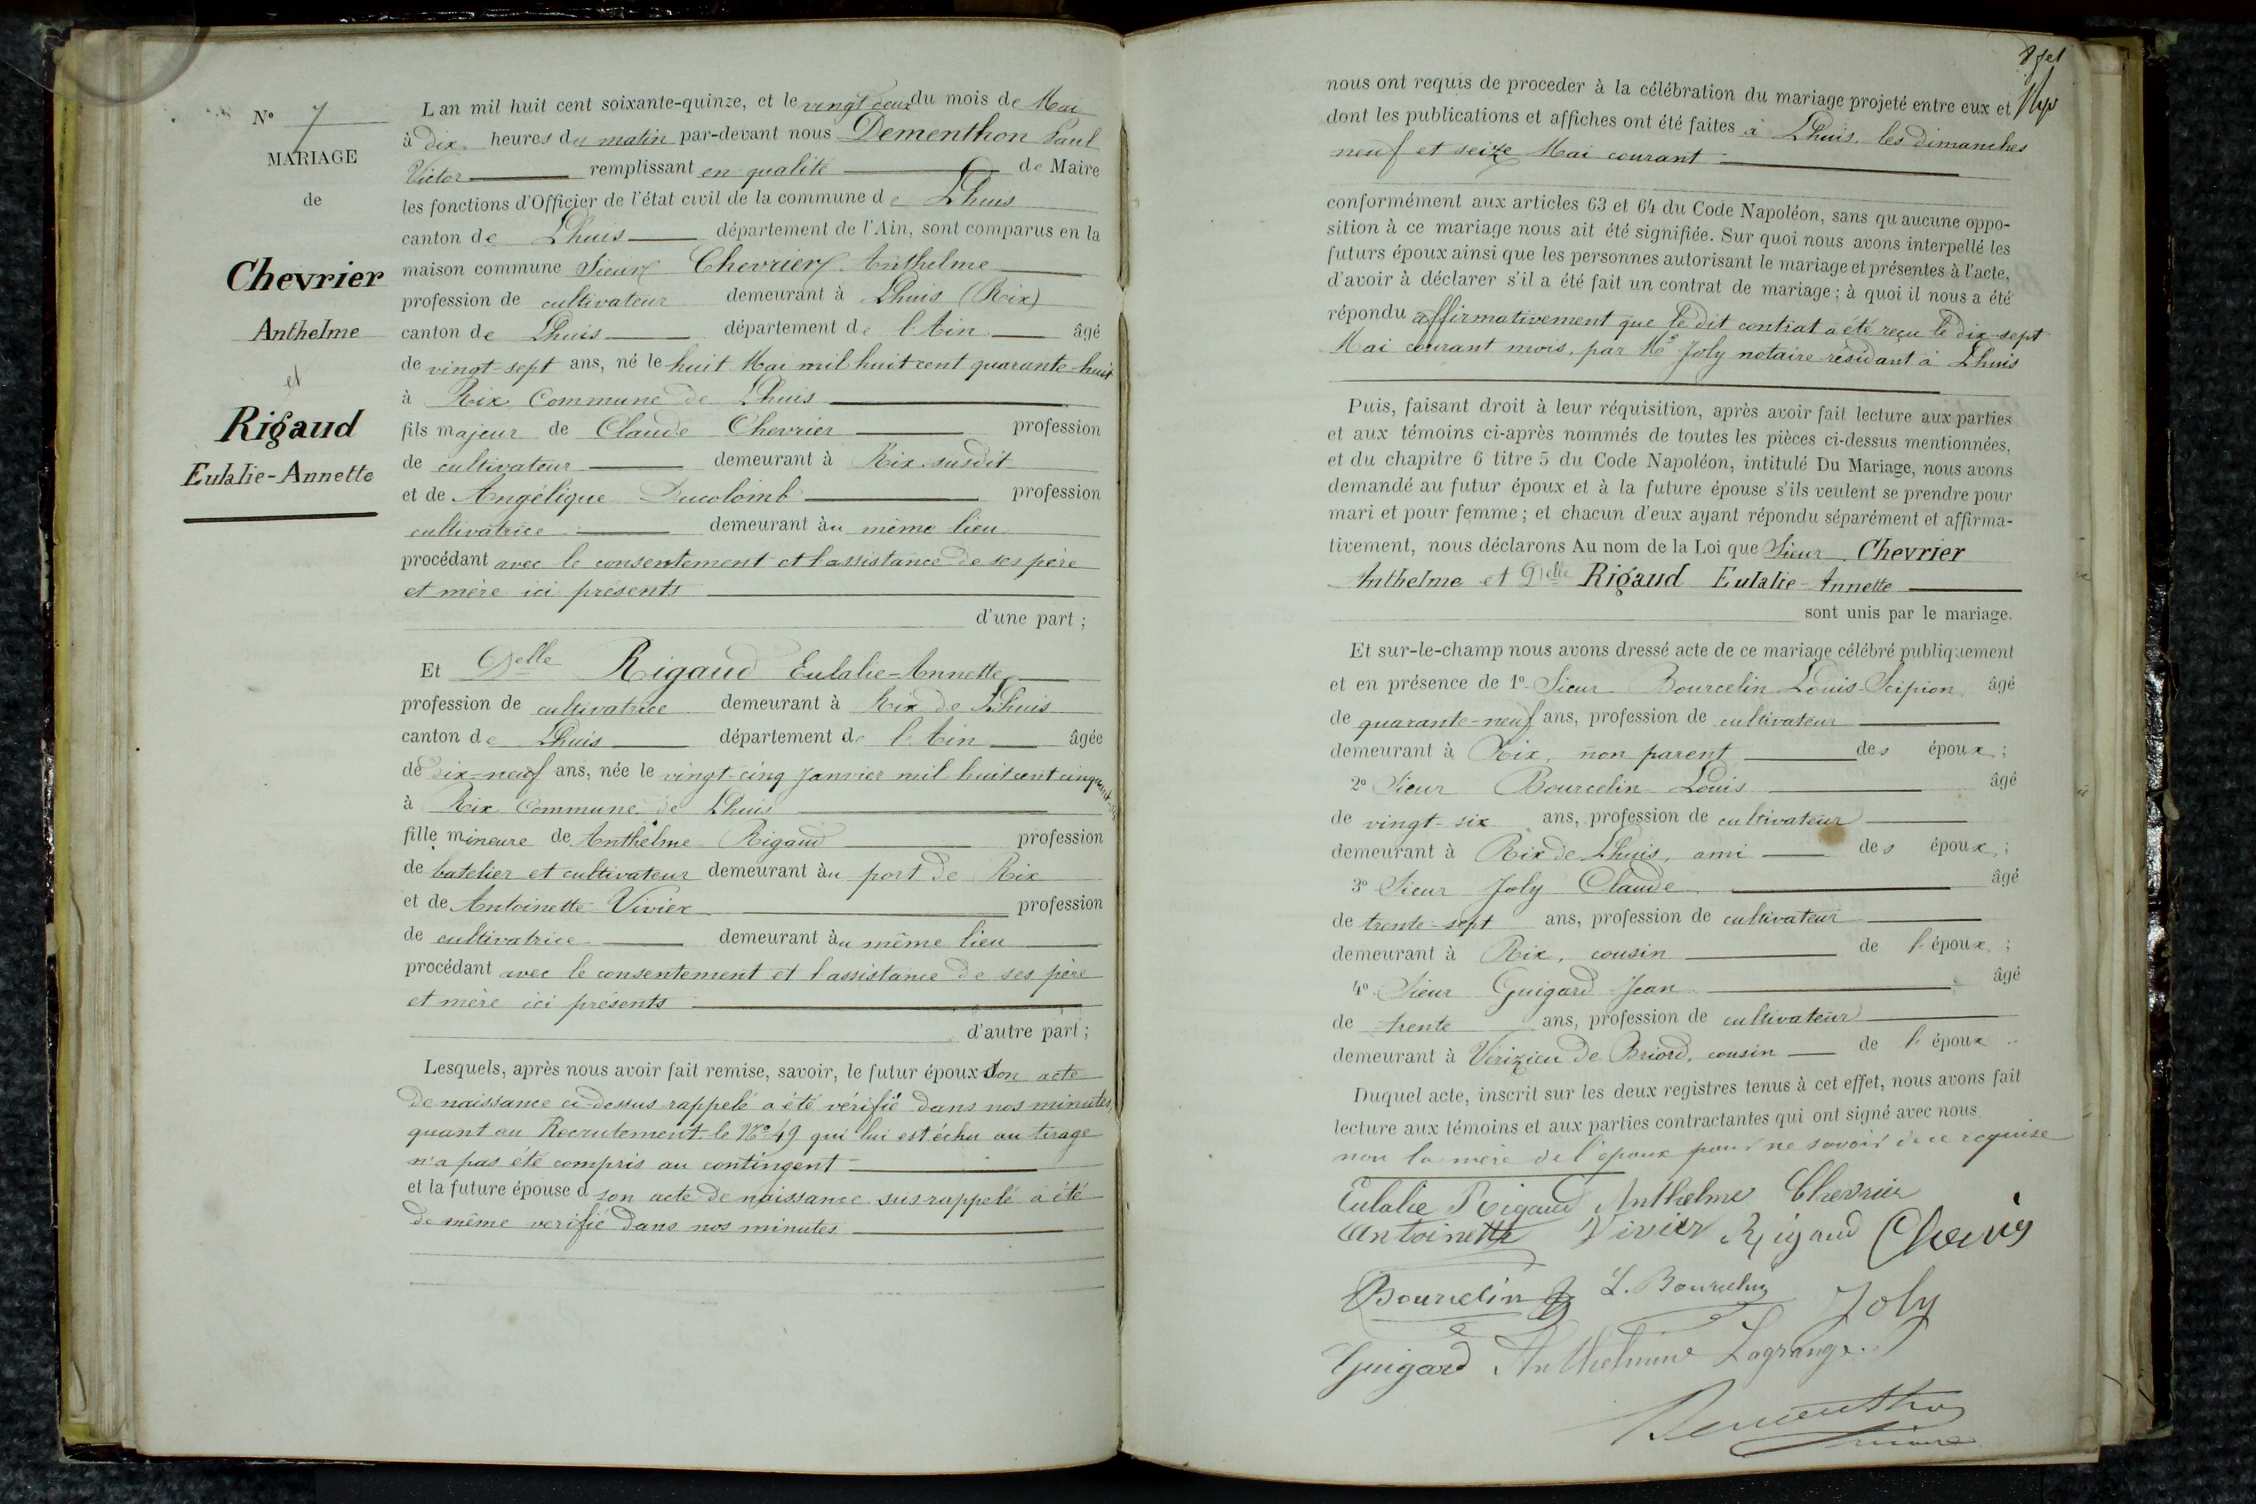 N° 7
MARIAGE
de
Chevrier
Anthelme
et
Rigaud
Eulalie-Annette
L an mil huit cent soixante-quinze, et le vingt deux du mois de Mai
à dix heures du matin par-devant nous Dementhon Paul
Victor remplissant en qualité de Maire
les fonctions d'Officier de l'état civil de la commune de Lhuis
canton de Lhuis département de l'Ain, sont comparus en la
maison commune Sieur Chevrier Anthelme
profession de cultivateur demeurant à Lhuis (Rix)
canton de Lhuis département de l'Ain âgé
de vingt-sept ans, né le huit Mai mil huit cent quarante-huit
à Rix Commune de Lhuis
fils majeur de Claude Chevrier profession
de cultivateur demeurant à Rix susdit
et de Angélique Ducolomb profession
cultivatrice demeurant àu même lieu
procédant avec le consentement et l'assistance de ses père
et mère ici présents
d'une part ;
Et Delle Rigaud Eulalie-Annette
profession de cultivatrice demeurant à Rix de Lhuis
canton de Lhuis département de l'Ain âgée
de dix-neuf ans, née le vingt-cinq Janvier mil huit cent cinquante-six
à Rix Commune de Lhuis
fille mineure de Anthelme Rigaud profession
de batelier et cultivateur demeurant àu port de Rix
et de Antoinette Vivier profession
de cultivatrice demeurant àu même lieu
procédant avec le consentement et l'assistance de ses père
et mère ici présents
d'autre part ;
Lesquels, après nous avoir fait remise, savoir, le futur époux son acte
de naissance ci-dessus rappelé a été vérifié dans nos minutes,
quant au Recrutement le N° 49 qui lui est échu au tirage
n'a pas été compris au contingent
et la future épouse d son acte de naissance sus rappelé a été
de même verifié dans nos minutes
nous ont requis de proceder à la célébration du mariage projeté entre eux et
dont les publications et affiches ont été faites à Lhuis, les dimanches
neuf et seize Mai courant
conformément aux articles 63 et 64 du Code Napoléon, sans qu aucune oppo-
sition à ce mariage nous ait été signifiée. Sur quoi nous avons interpellé les
futurs époux ainsi que les personnes autorisant le mariage et présentes à l'acte,
d'avoir à déclarer s'il a été fait un contrat de mariage ; à quoi il nous a été
répondu affirmativement que le dit contrat a été reçu le dix-sept
Mai courant mois, par Me Joly notaire résidant à Lhuis
Puis, faisant droit à leur réquisition, après avoir fait lecture aux parties
et aux témoins ci-après nommés de toutes les pièces ci-dessus mentionnées,
et du chapitre 6 titre 5 du Code Napoléon, intitulé Du Mariage, nous avons
demandé au futur époux et à la future épouse s'ils veulent se prendre pour
mari et pour femme ; et chacun d'eux ayant répondu séparément et affirma-
tivement, nous déclarons Au nom de la Loi que Sieur Chevrier
Anthelme et Delle Rigaud Eulalie-Annette
sont unis par le mariage.
Et sur-le-champ nous avons dressé acte de ce mariage célébré publiquement
et en présence de 1° Sieur Bourcelin Louis-Scipion âgé
de quarante-neuf ans, profession de cultivateur
demeurant à Rix, non parent des époux ;
2° Sieur Bourcelin Louis âgé
de vingt-six ans, profession de cultivateur
demeurant à Rix de Lhuis, ami des époux ;
3° Sieur Joly Claude âgé
de trente-sept ans, profession de cultivateur
demeurant à Rix, cousin de l'époux ;
4° Sieur Guigard Jean âgé
de trente ans, profession de cultivateur
demeurant à Vérizieu de Briord, cousin de l'époux
Duquel acte, inscrit sur les deux registres tenus à cet effet, nous avons fait
lecture aux témoins et aux parties contractantes qui ont signé avec nous
non la mère de l'époux pour ne savoir de ce requise
Eulalie Rigaud Anthelme Chevrier
Antoinette Vivier Rigaud
Bourcelin L. Bourcelin Joly
Guigard Anthelmine Lagrange
Dementhon
maire